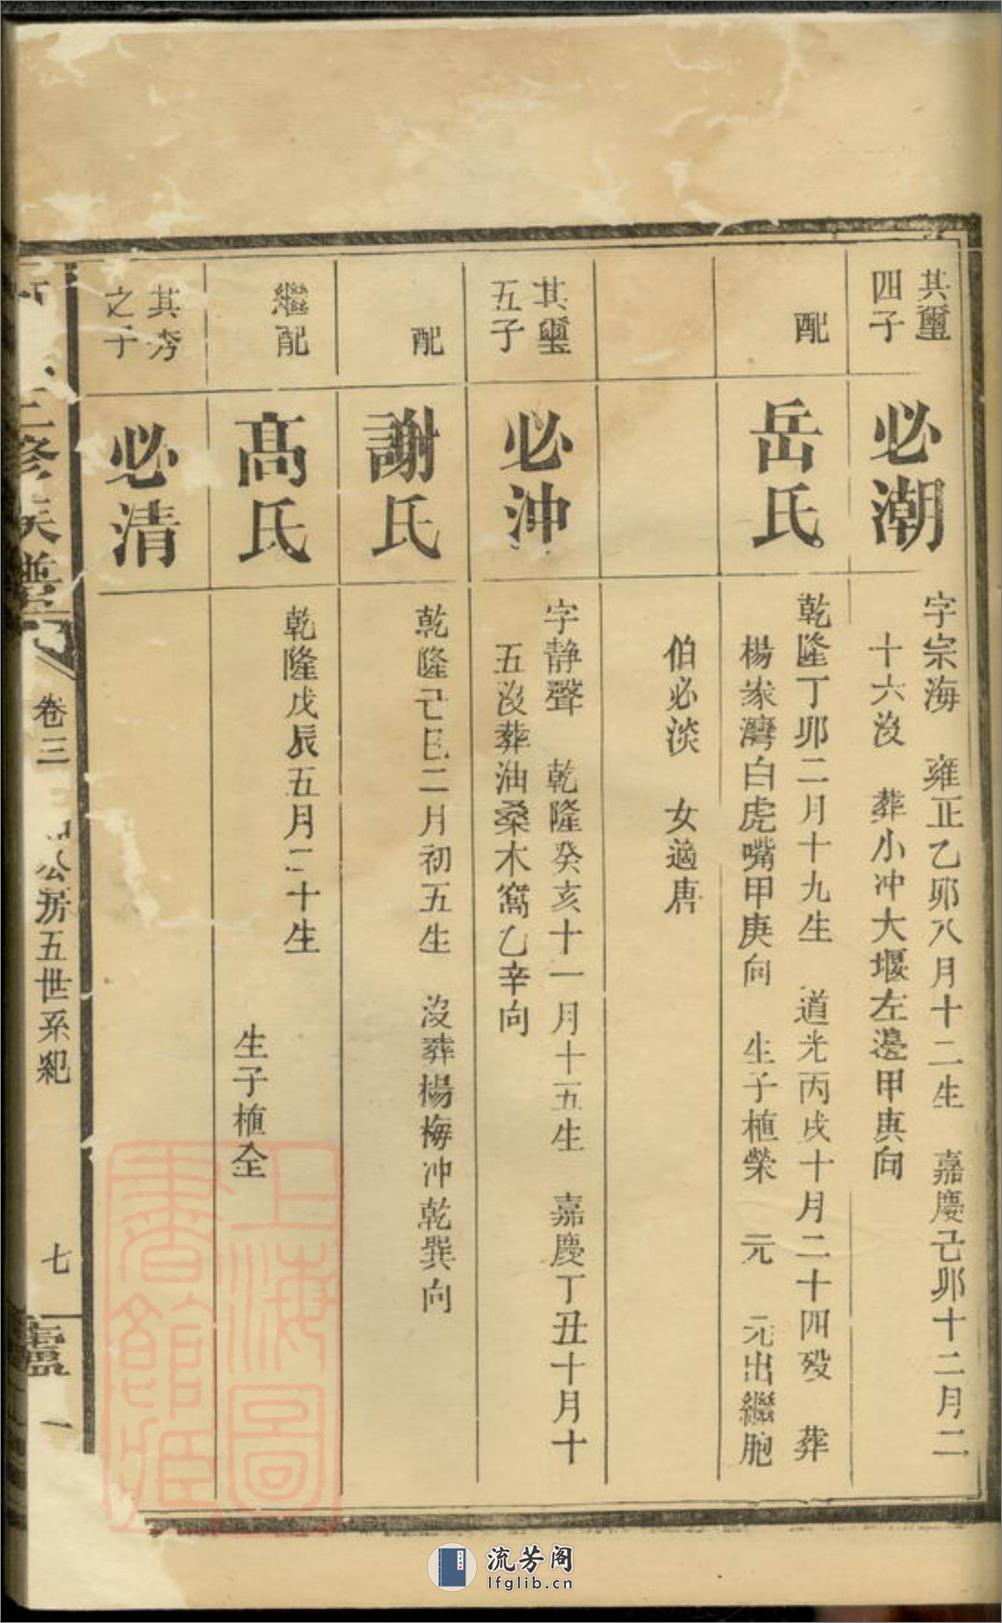 其璽
四子
必潮
字宗海　雍正乙卯八月十二生　嘉慶己卯十二月二
十六沒　葬小冲大堰左邊甲庚向
配
岳氏
乾隆丁卯二月十九生　道光丙戌十月二十四歿　葬
楊家灣白虎嘴甲庚向　生子植榮　元　元出繼胞
伯必淡　女適唐
其璽
五子
必沖
字静聲　乾隆癸亥十一月十五生　嘉慶丁丑十月十
五沒葬油桑木窩乙辛向
配
謝氏
乾隆己巳二月初五生　沒葬楊梅冲乾巽向
繼配
高氏
乾隆戊辰五月二十生
生子植全
其秀
之子
必清
修族譜
卷三
公房五世系紀
七
一
上海圖
書館藏
流芳阁
lfglib.cn